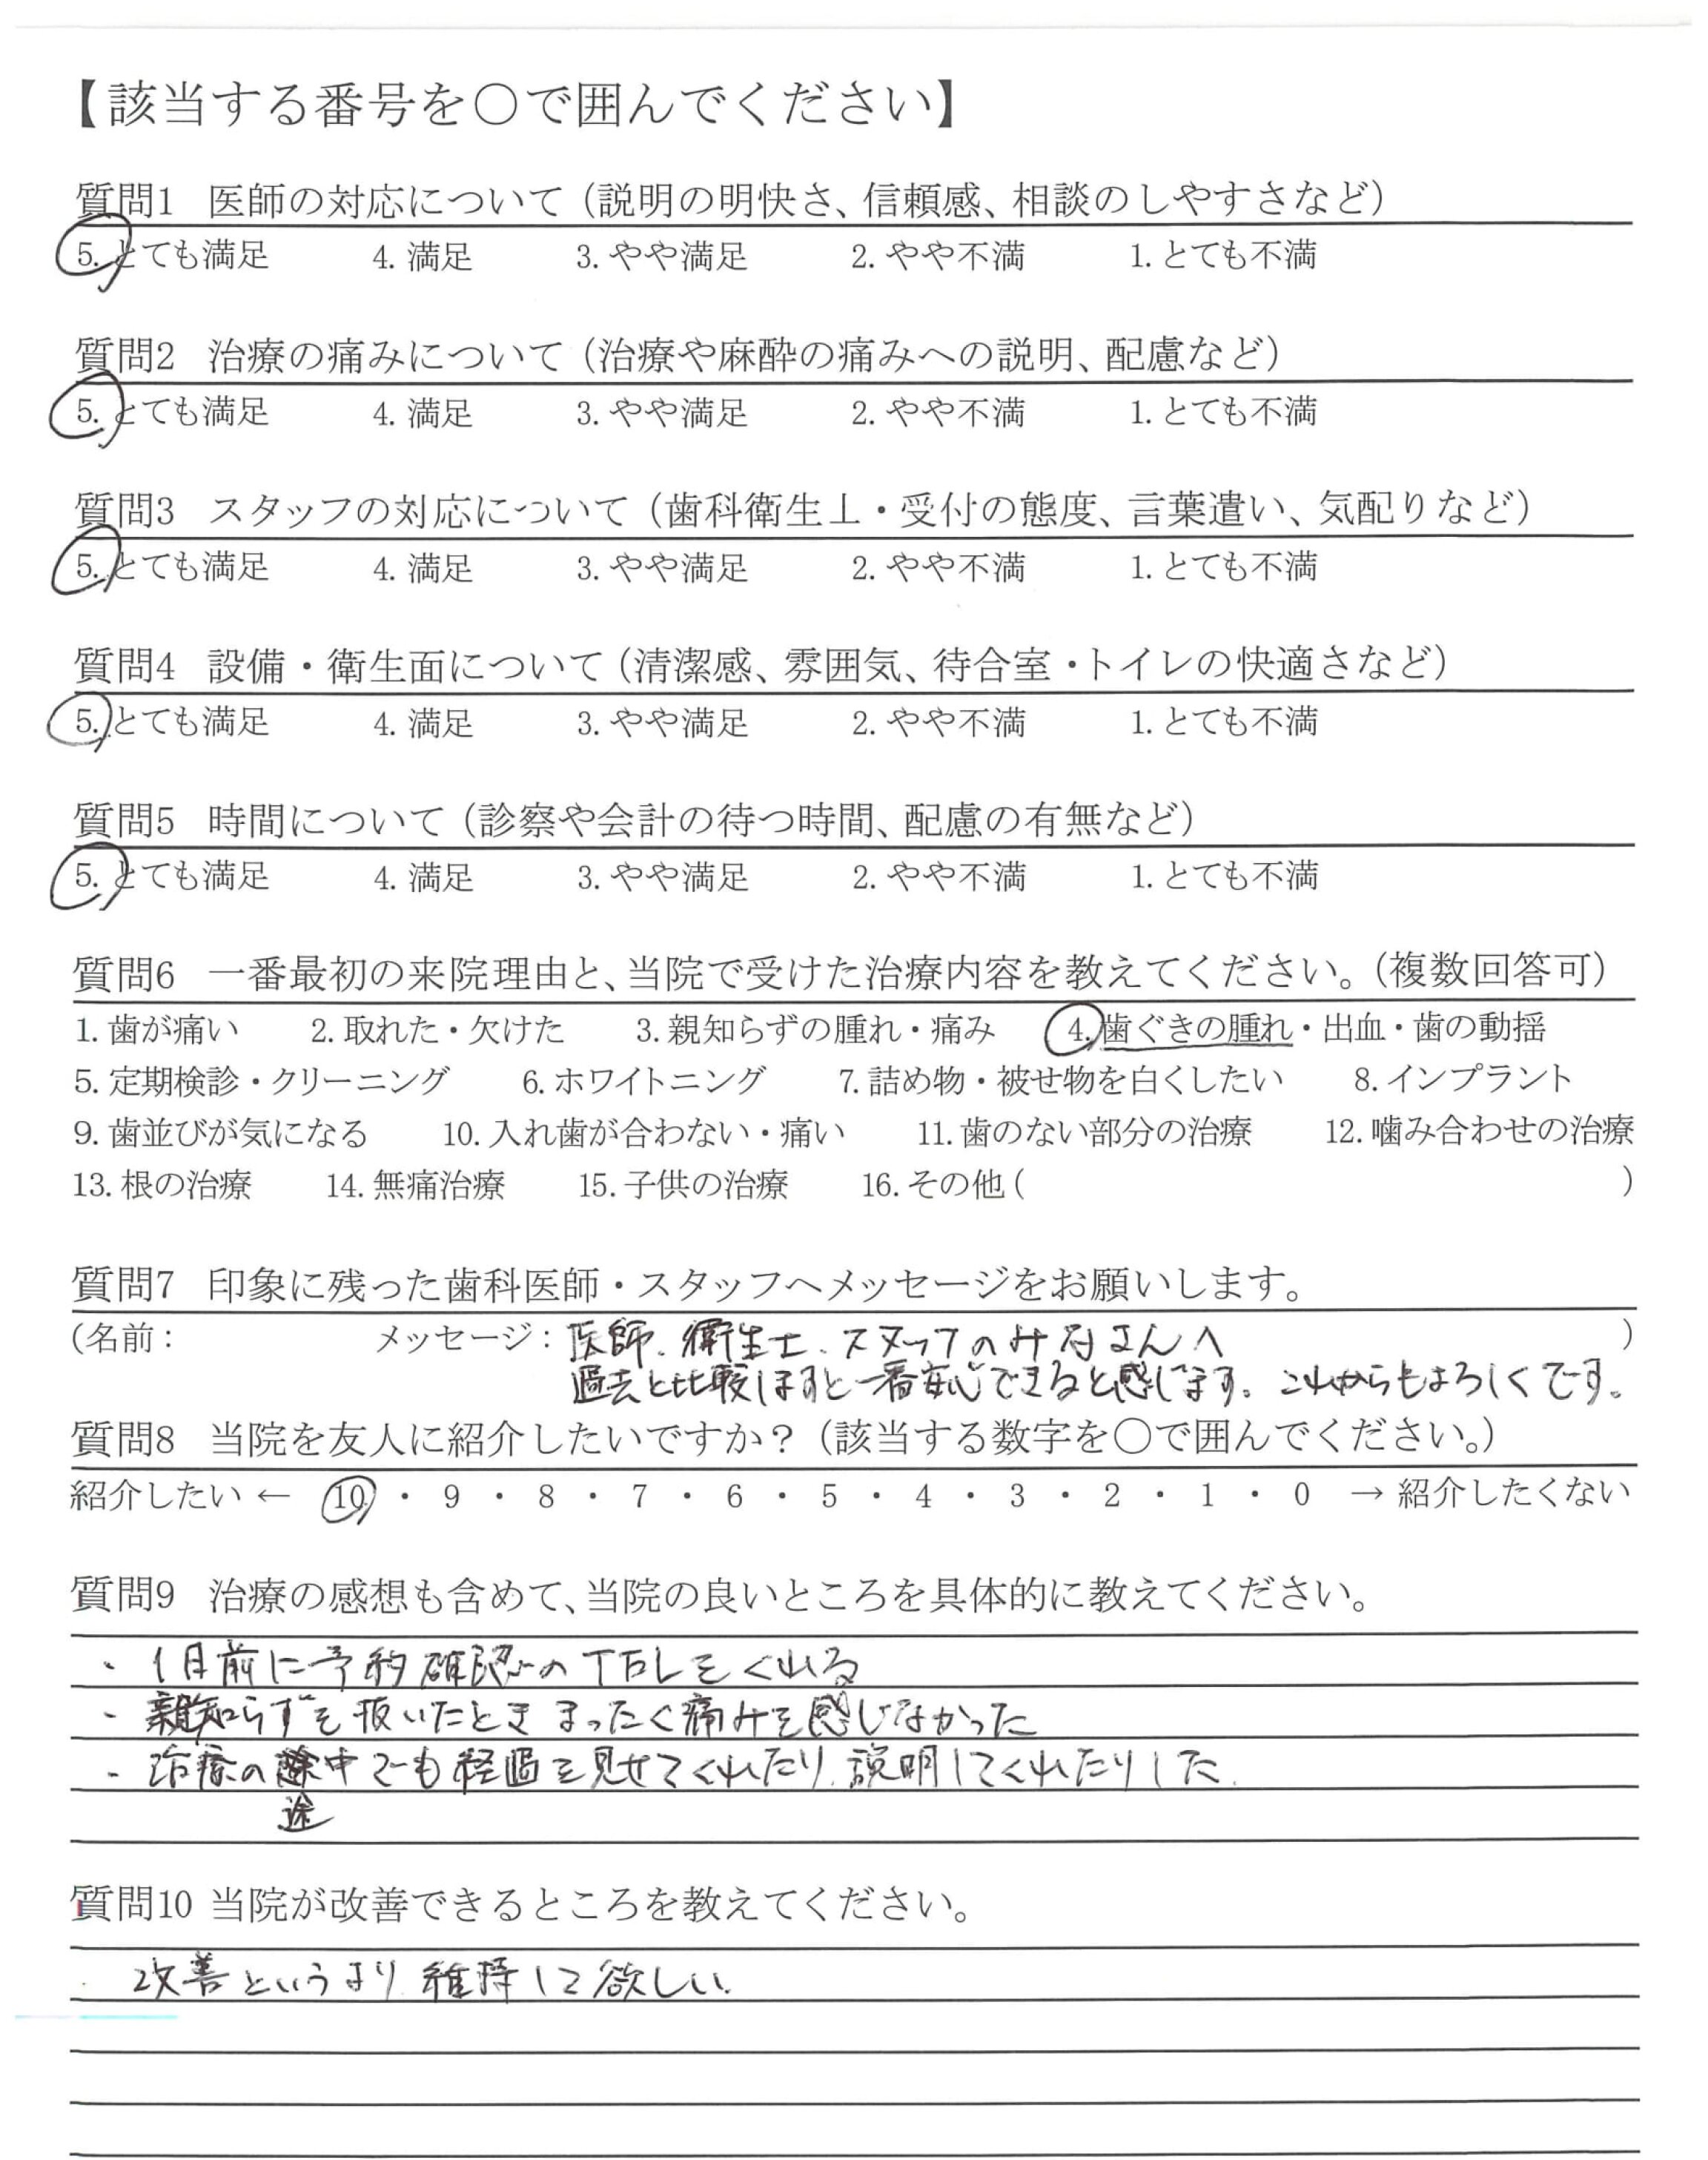 【該当する番号を○で囲んでください】
質問1 医師の対応について（説明の明快さ、信頼感、相談のしやすさなど）
5. とても満足 4. 満足 3. やや満足 2. やや不満 1. とても不満
質問2 治療の痛みについて（治療や麻酔の痛みへの説明、配慮など）
5. とても満足 4. 満足 3. やや満足 2. やや不満 1. とても不満
質問3 スタッフの対応について（歯科衛生士・受付の態度、言葉遣い、気配りなど）
5. とても満足 4. 満足 3. やや満足 2. やや不満 1. とても不満
質問4 設備・衛生面について（清潔感、雰囲気、待合室・トイレの快適さなど）
5. とても満足 4. 満足 3. やや満足 2. やや不満 1. とても不満
質問5 時間について（診察や会計の待つ時間、配慮の有無など）
5. とても満足 4. 満足 3. やや満足 2. やや不満 1. とても不満
質問6 一番最初の来院理由と、当院で受けた治療内容を教えてください。（複数回答可）
1. 歯が痛い 2. 取れた・欠けた 3. 親知らずの腫れ・痛み 4. 歯ぐきの腫れ・出血・歯の動揺
5. 定期検診・クリーニング 6. ホワイトニング 7. 詰め物・被せ物を白くしたい 8. インプラント
9. 歯並びが気になる 10. 入れ歯が合わない・痛い 11. 歯のない部分の治療 12. 噛み合わせの治療
13. 根の治療 14. 無痛治療 15. 子供の治療 16. その他（ ）
質問7 印象に残った歯科医師・スタッフへメッセージをお願いします。
（名前： メッセージ：医師、衛生士、スタッフのみなさんへ ）
過去と比較しますと一番安心できると感じます。これからもよろしくです。
質問8 当院を友人に紹介したいですか？（該当する数字を○で囲んでください。）
紹介したい ← 10 ・ 9 ・ 8 ・ 7 ・ 6 ・ 5 ・ 4 ・ 3 ・ 2 ・ 1 ・ 0 → 紹介したくない
質問9 治療の感想も含めて、当院の良いところを具体的に教えてください。
・1日前に予約確認のTELをくれる
・親知らずを抜いたときまったく痛みを感じなかった
・治療の中でも経過を見せてくれたり、説明してくれたりした。
途
質問10 当院が改善できるところを教えてください。
・改善というより、維持して欲しい。